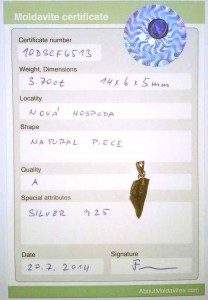 Moldavite certificate
Certificate number
10DSCF6513
Weight, Dimensions
3.70ct 14x6x5mm
Locality
NOVÁ HOSPODA
Shape
NATURAL PIECE
Quality
A
Special attributes
SILVER 925
Date
Signature
20.7.2014
AboutMoldavites.com